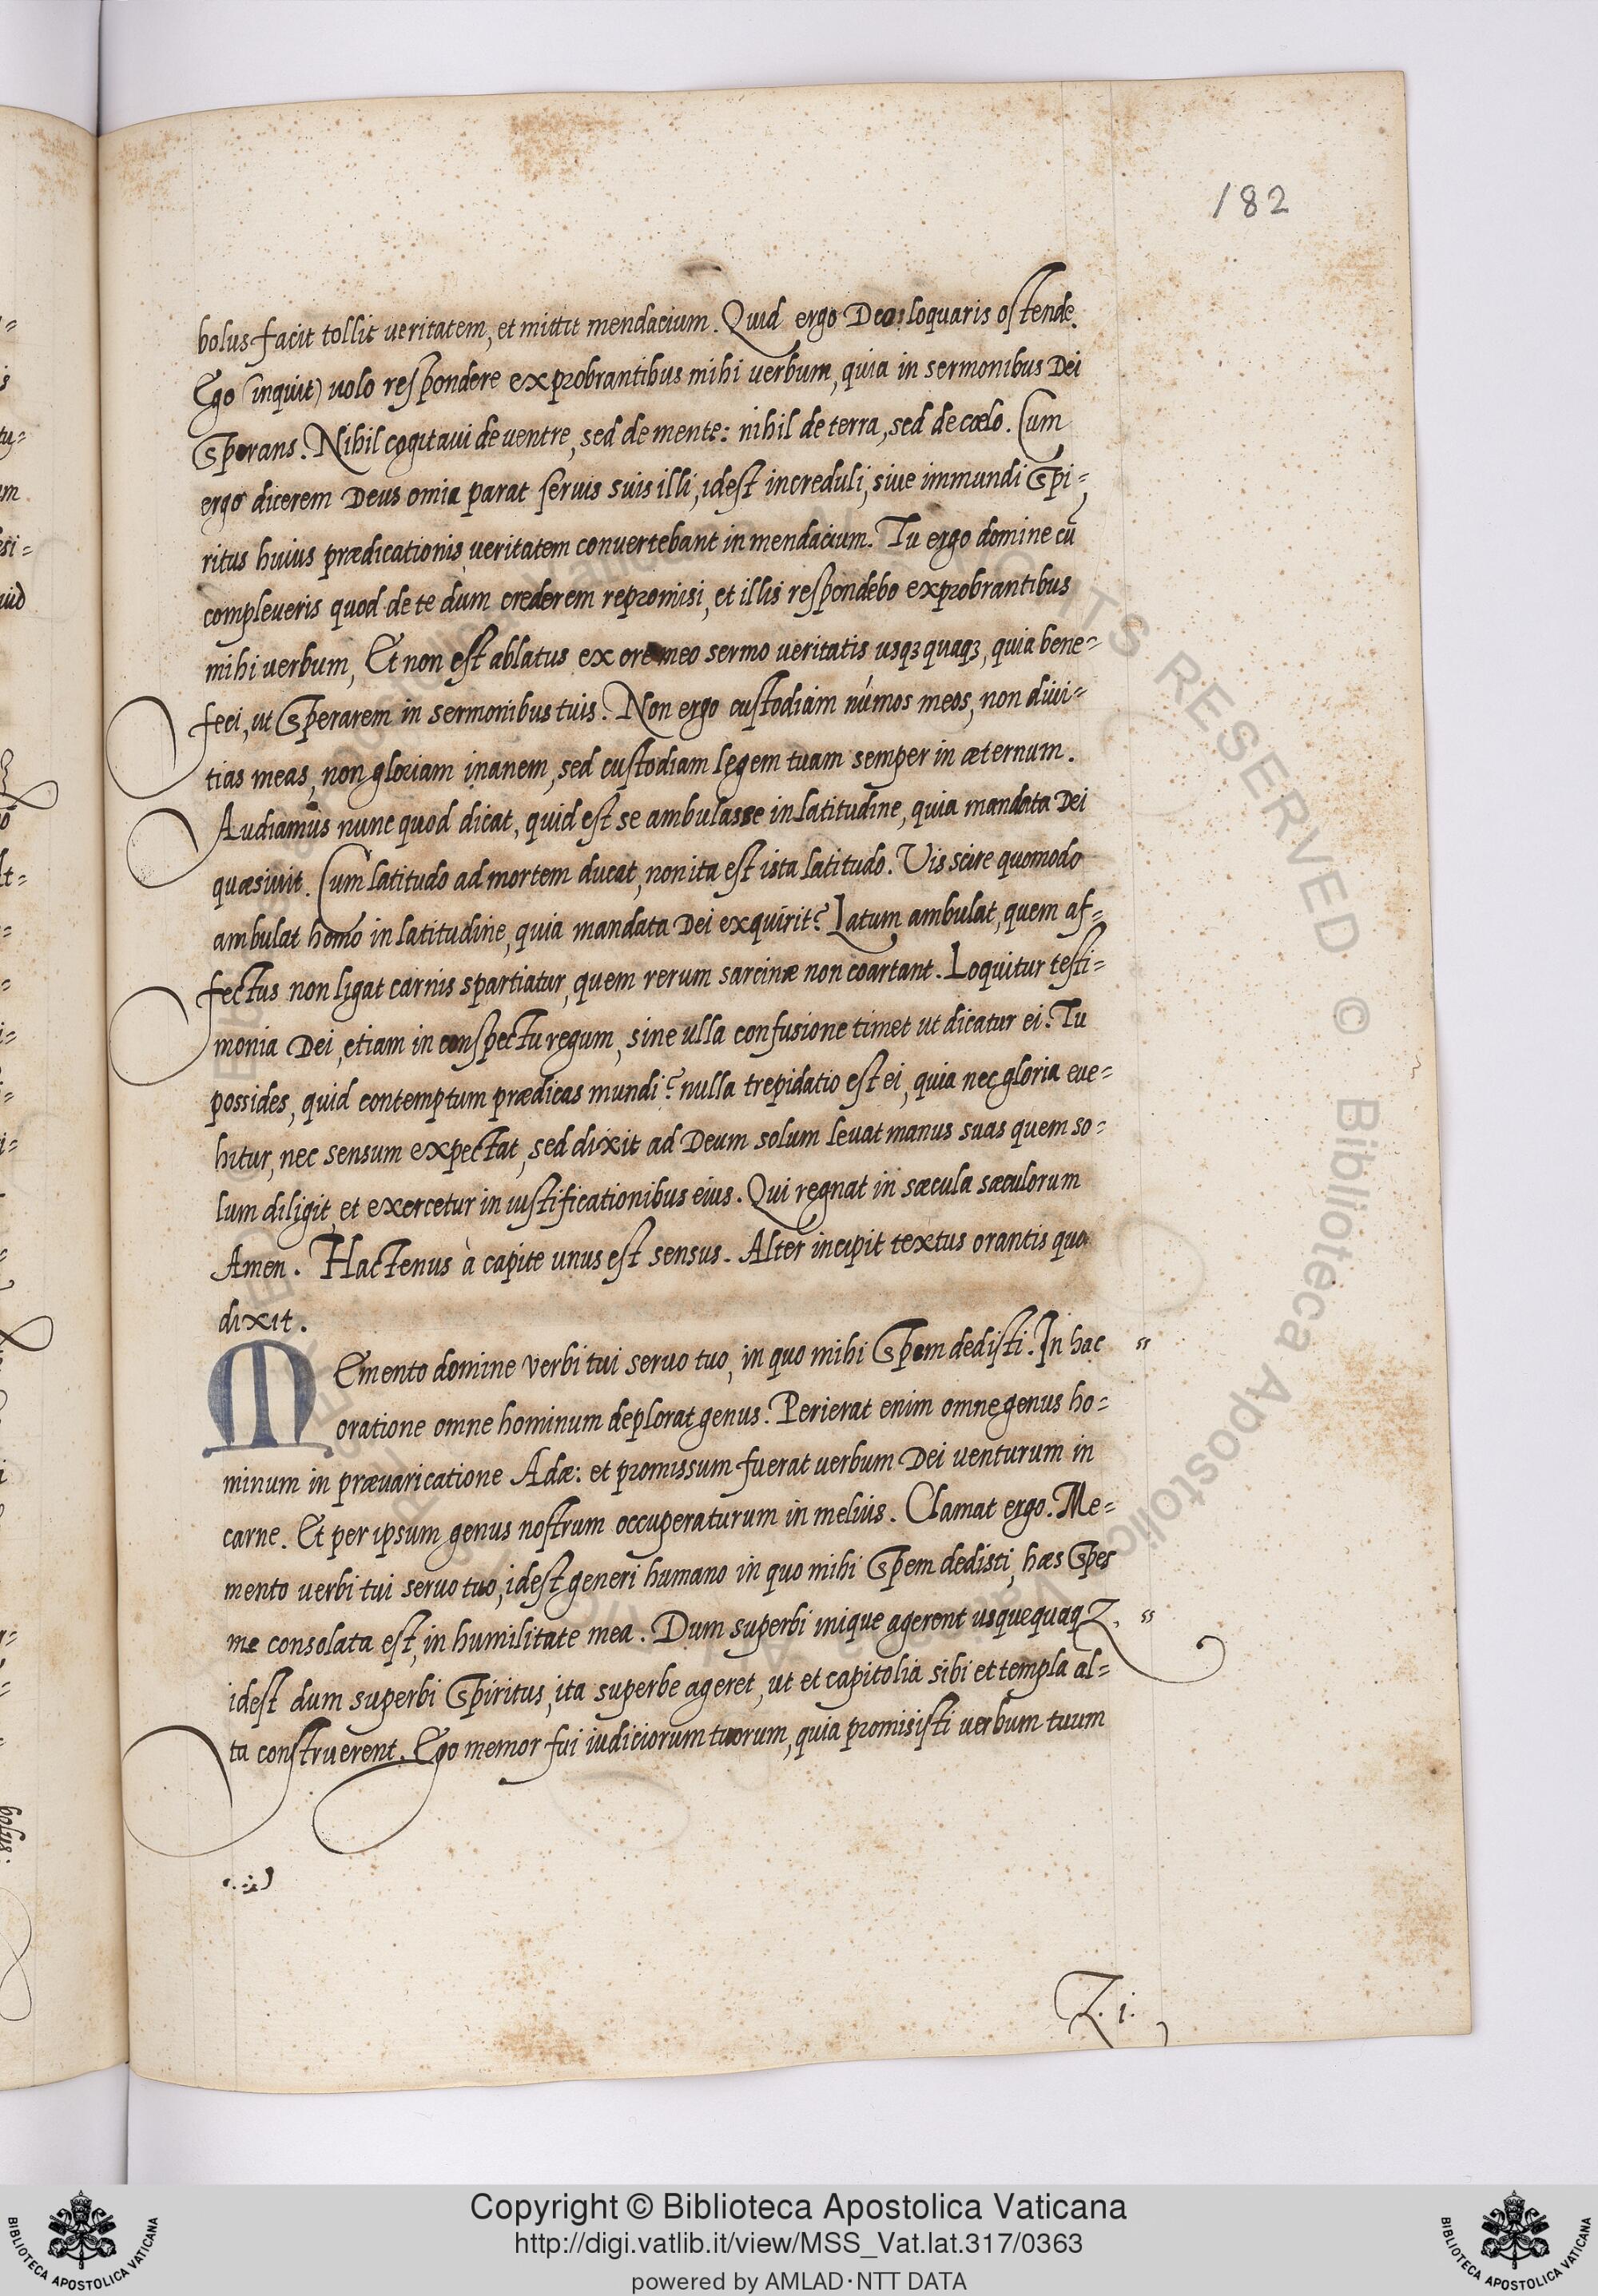 182
bolus facit tollit veritatem, et mittit mendacium. Quid ergo Deo loquaris ostende.
Ego (inquit) volo respondere exprobrantibus mihi verbum, quia in sermonibus Dei
Sperans. Nihil cogitaui de ventre, sed de mente: nihil de terra, sed de cœlo. Cum
ergo dicerem Deus omia parat seruis suis illi, idest increduli, siue immundi Spi=
ritus huius prædicationis veritatem convertebant in mendacium. Tu ergo domine cū
compleueris quod de te dum crederem repromisi, et illis respondebo exprobrantibus
mihi verbum, Et non est ablatus ex ore meo sermo veritatis usqꝫ quaqꝫ, quia bene=
feci, ut Sperarem in sermonibus tuis. Non ergo custodiam nūmos meos, non diui=
tias meas, non gloriam inanem, sed custodiam legem tuam semper in æternum.
Audiamus nunc quod dicat, quid est se ambulasse in latitudine, quia mandata Dei
quæsiuit. Cum latitudo ad mortem ducat, non ita est ista latitudo. Vis scire quomodo
ambulat homo in latitudine, quia mandata Dei exquirit? Latum ambulat, quem af=
fectus non ligat carnis spartiatur, quem rerum sarcinæ non coartant. Loquitur testi=
monia Dei, etiam in conspectu regum, sine ulla confusione timet ut dicatur ei: Tu
possides, quid contemptum prædicas mundi? nulla trepidatio est ei, quia nec gloria eue=
hitur, nec sensum expectat, sed dixit ad Deum solum levat manus suas quem so=
lum diligit, et exercetur in iustificationibus eius. Qui regnat in sæcula sæculorum
Amen. Hactenus à capite unus est sensus. Alter incipit textus orantis quo
dixit.
MEmento domine verbi tui seruo tuo, in quo mihi Spem dedisti. In hac "
oratione omne hominum deplorat genus. Perierat enim omne genus ho=
minum in prævaricatione Adæ: et promissum fuerat verbum Dei venturum in
carne. Et per ipsum genus nostrum occuperaturum in melius. Clamat ergo. Me=
mento verbi tui seruo tuo, idest generi humano in quo mihi Spem dedisti, hæs Spes
me consolata est, in humilitate mea. Dum superbi inique agerent usquequaqꝫ. "
idest dum superbi Spiritus, ita superbe ageret, ut et capitolia sibi et templa al=
ta construerent. Ego memor fui iudiciorum tuorum, quia promisisti verbum tuum
Z. i.
Copyright © Biblioteca Apostolica Vaticana
http://digi.vatlib.it/view/MSS_Vat.lat.317/0363
powered by AMLAD·NTT DATA
BIBLIOTECA APOSTOLICA VATICANA
BIBLIOTECA APOSTOLICA VATICANA